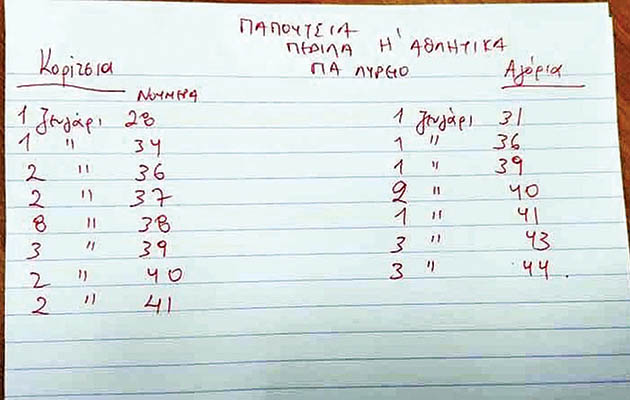 ΠΑΠΟΥΤΣΙΑ
ΠΕΔΙΛΑ Η' ΑΘΛΗΤΙΚΑ
ΓΙΑ ΛΥΚΕΙΟ
Κορίτσια
ΝΟΥΜΕΡΑ
1 ζευγάρι 28
1 " 34
2 " 36
2 " 37
8 " 38
3 " 39
2 " 40
2 " 41
Αγόρια
1 ζευγάρι 31
1 " 36
1 " 39
2 " 40
1 " 41
3 " 43
3 " 44.